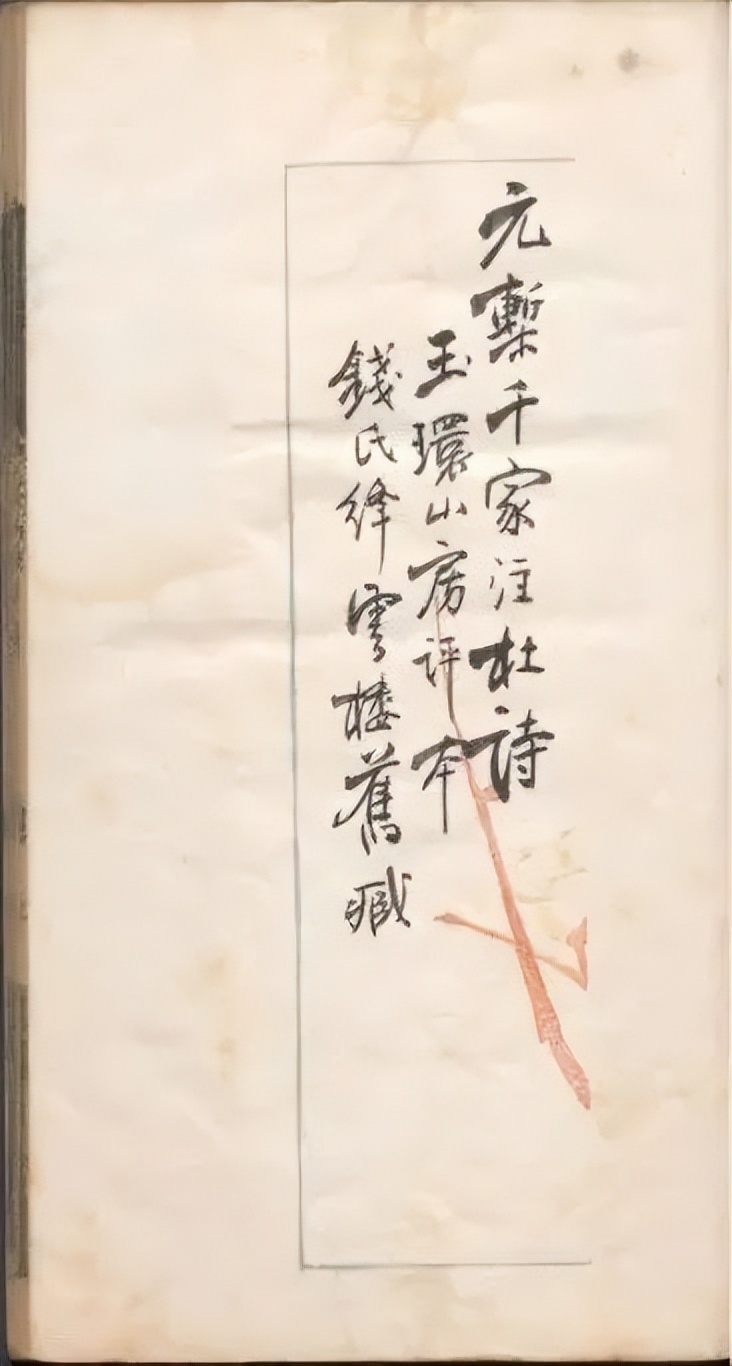 元槧千家注杜詩
玉環山房評本
錢氏絳雲樓舊臧